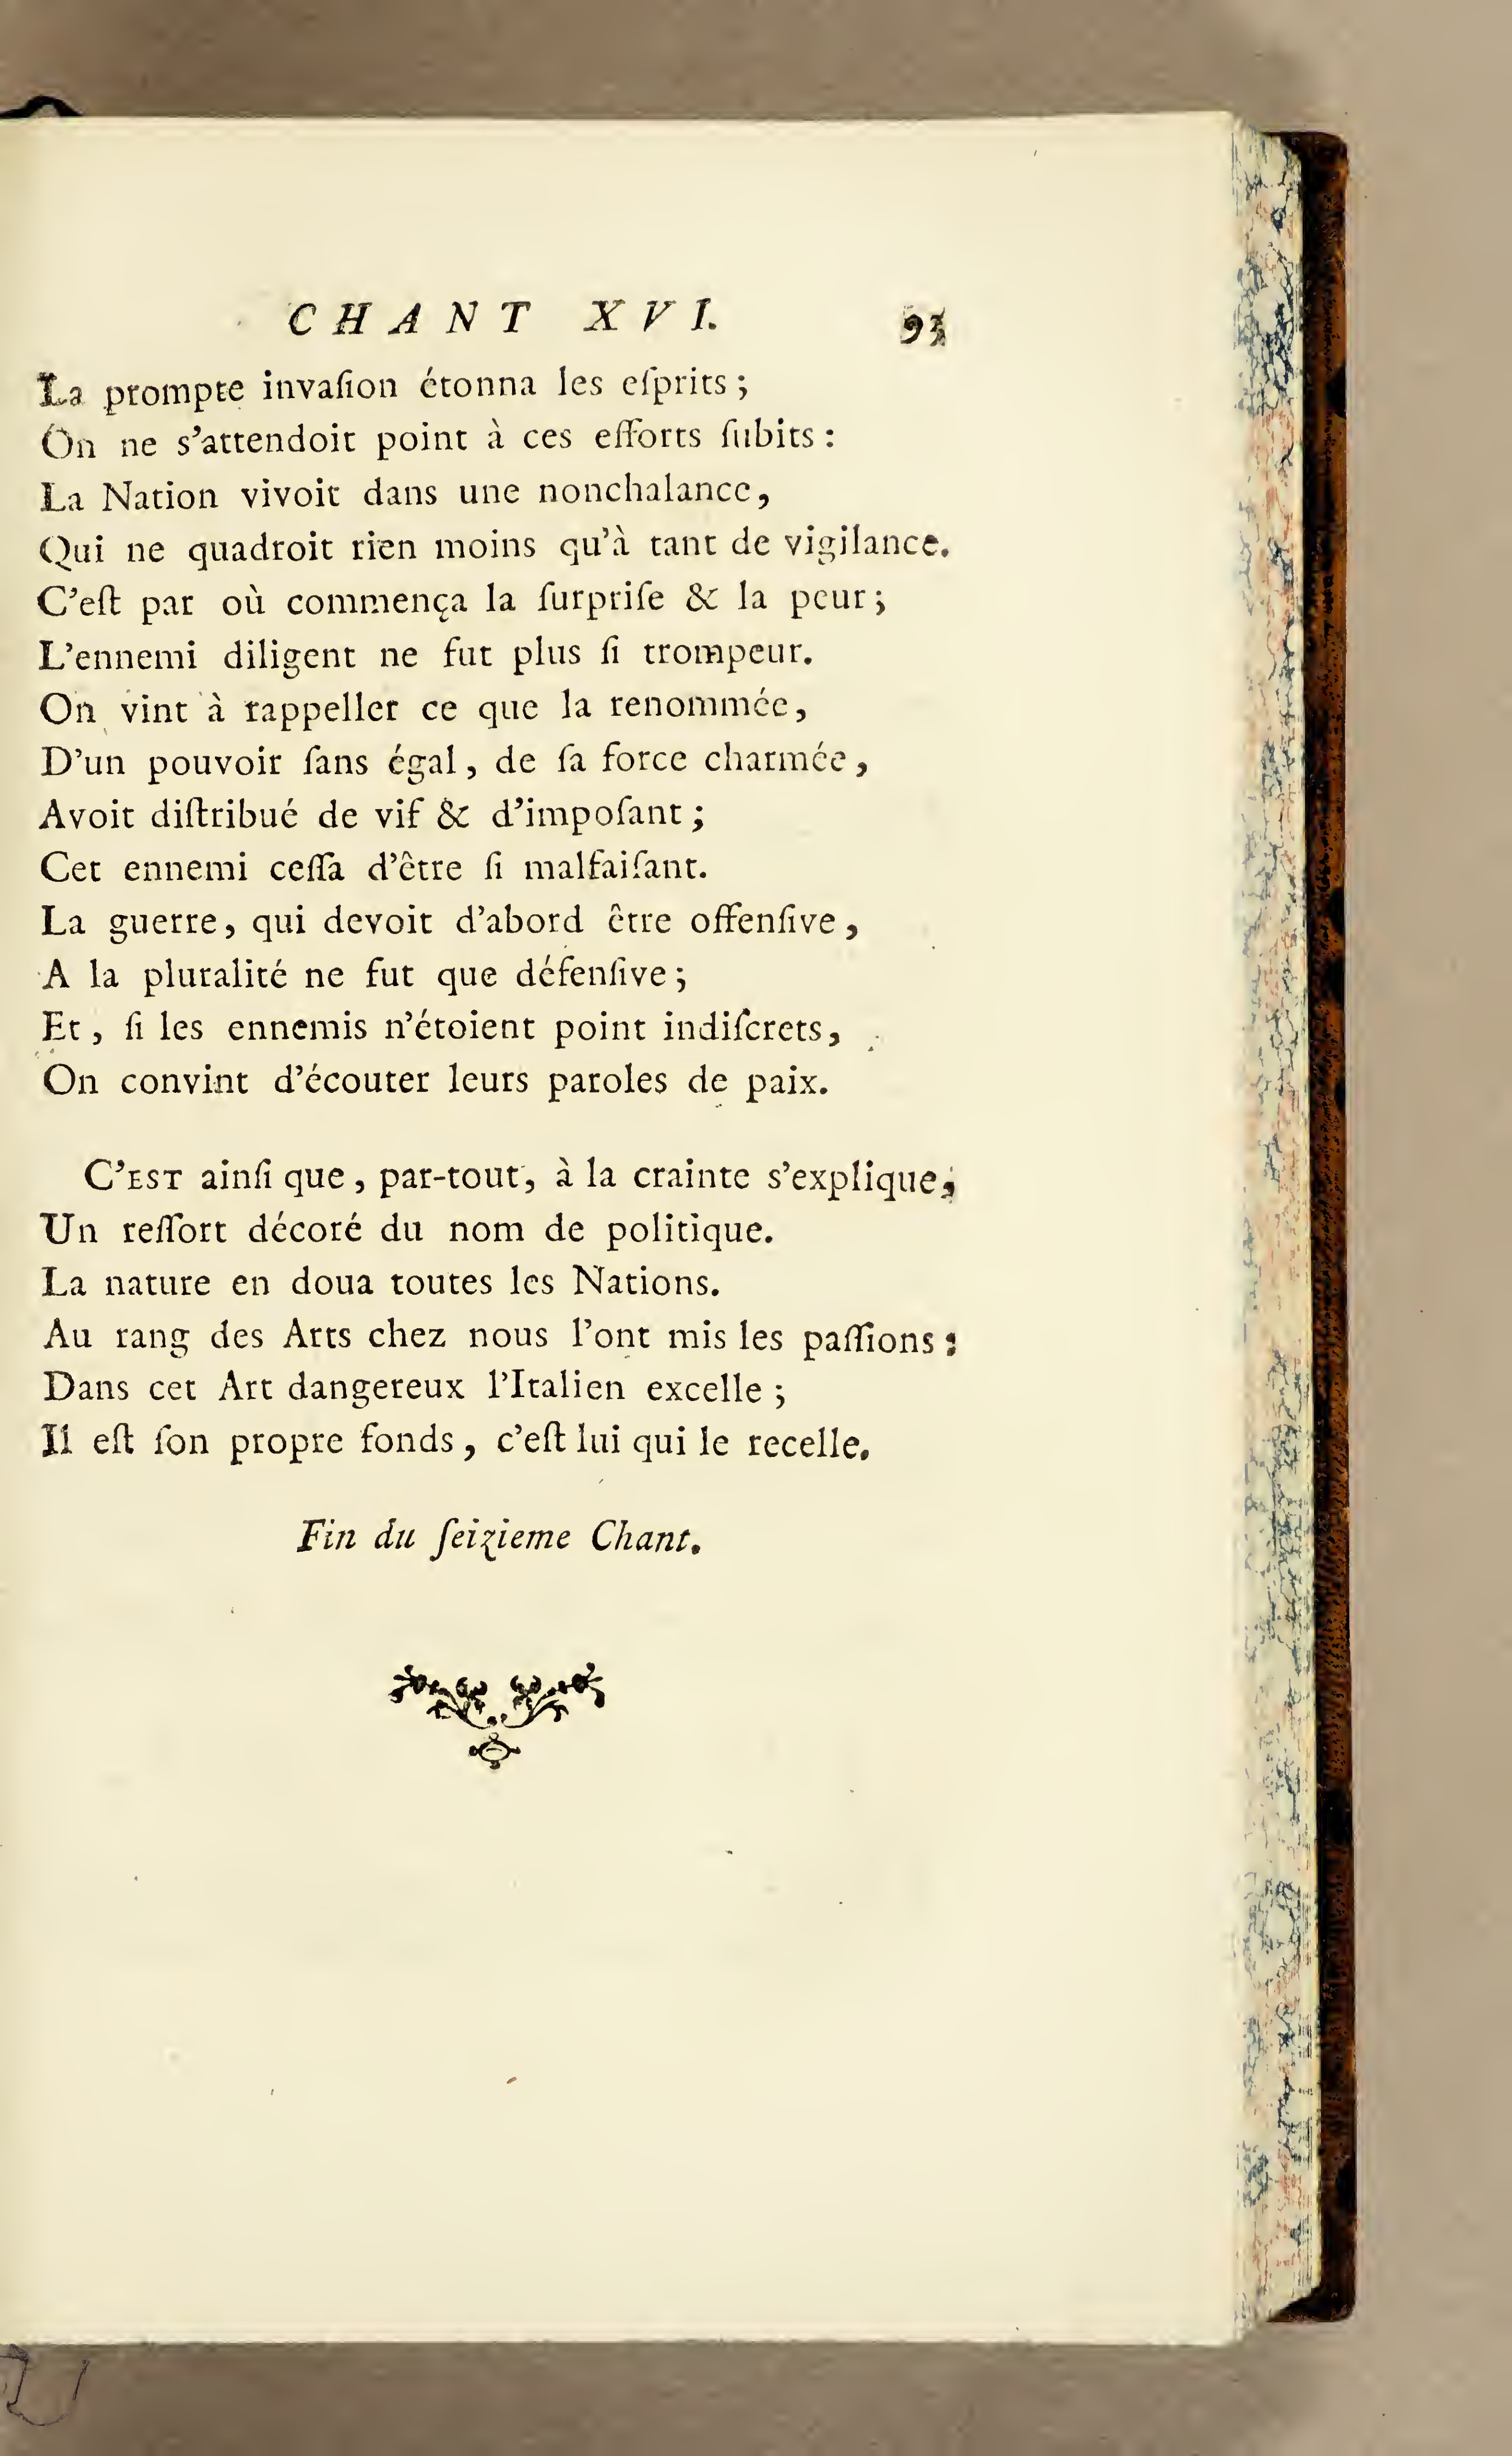 CHANT XVI. 93
La prompte invaſion étonna les eſprits ;
On ne s'attendoit point à ces efforts ſubits :
La Nation vivoit dans une nonchalance,
Qui ne quadroit rien moins qu'à tant de vigilance.
C'eſt par où commença la ſurpriſe & la peur ;
L'ennemi diligent ne fut plus ſi trompeur.
On vint à rappeller ce que la renommée,
D'un pouvoir ſans égal, de ſa force charmée,
Avoit diſtribué de vif & d'impoſant ;
Cet ennemi ceſſa d'être ſi malfaiſant.
La guerre, qui devoit d'abord être offenſive,
A la pluralité ne fut que défenſive ;
Et, ſi les ennemis n'étoient point indiſcrets,
On convint d'écouter leurs paroles de paix.
C'EST ainſi que, par-tout, à la crainte s'explique,
Un reſſort décoré du nom de politique.
La nature en doua toutes les Nations.
Au rang des Arts chez nous l'ont mis les paſſions :
Dans cet Art dangereux l'Italien excelle ;
Il eſt ſon propre fonds, c'eſt lui qui le recelle.
Fin du ſeizieme Chant.